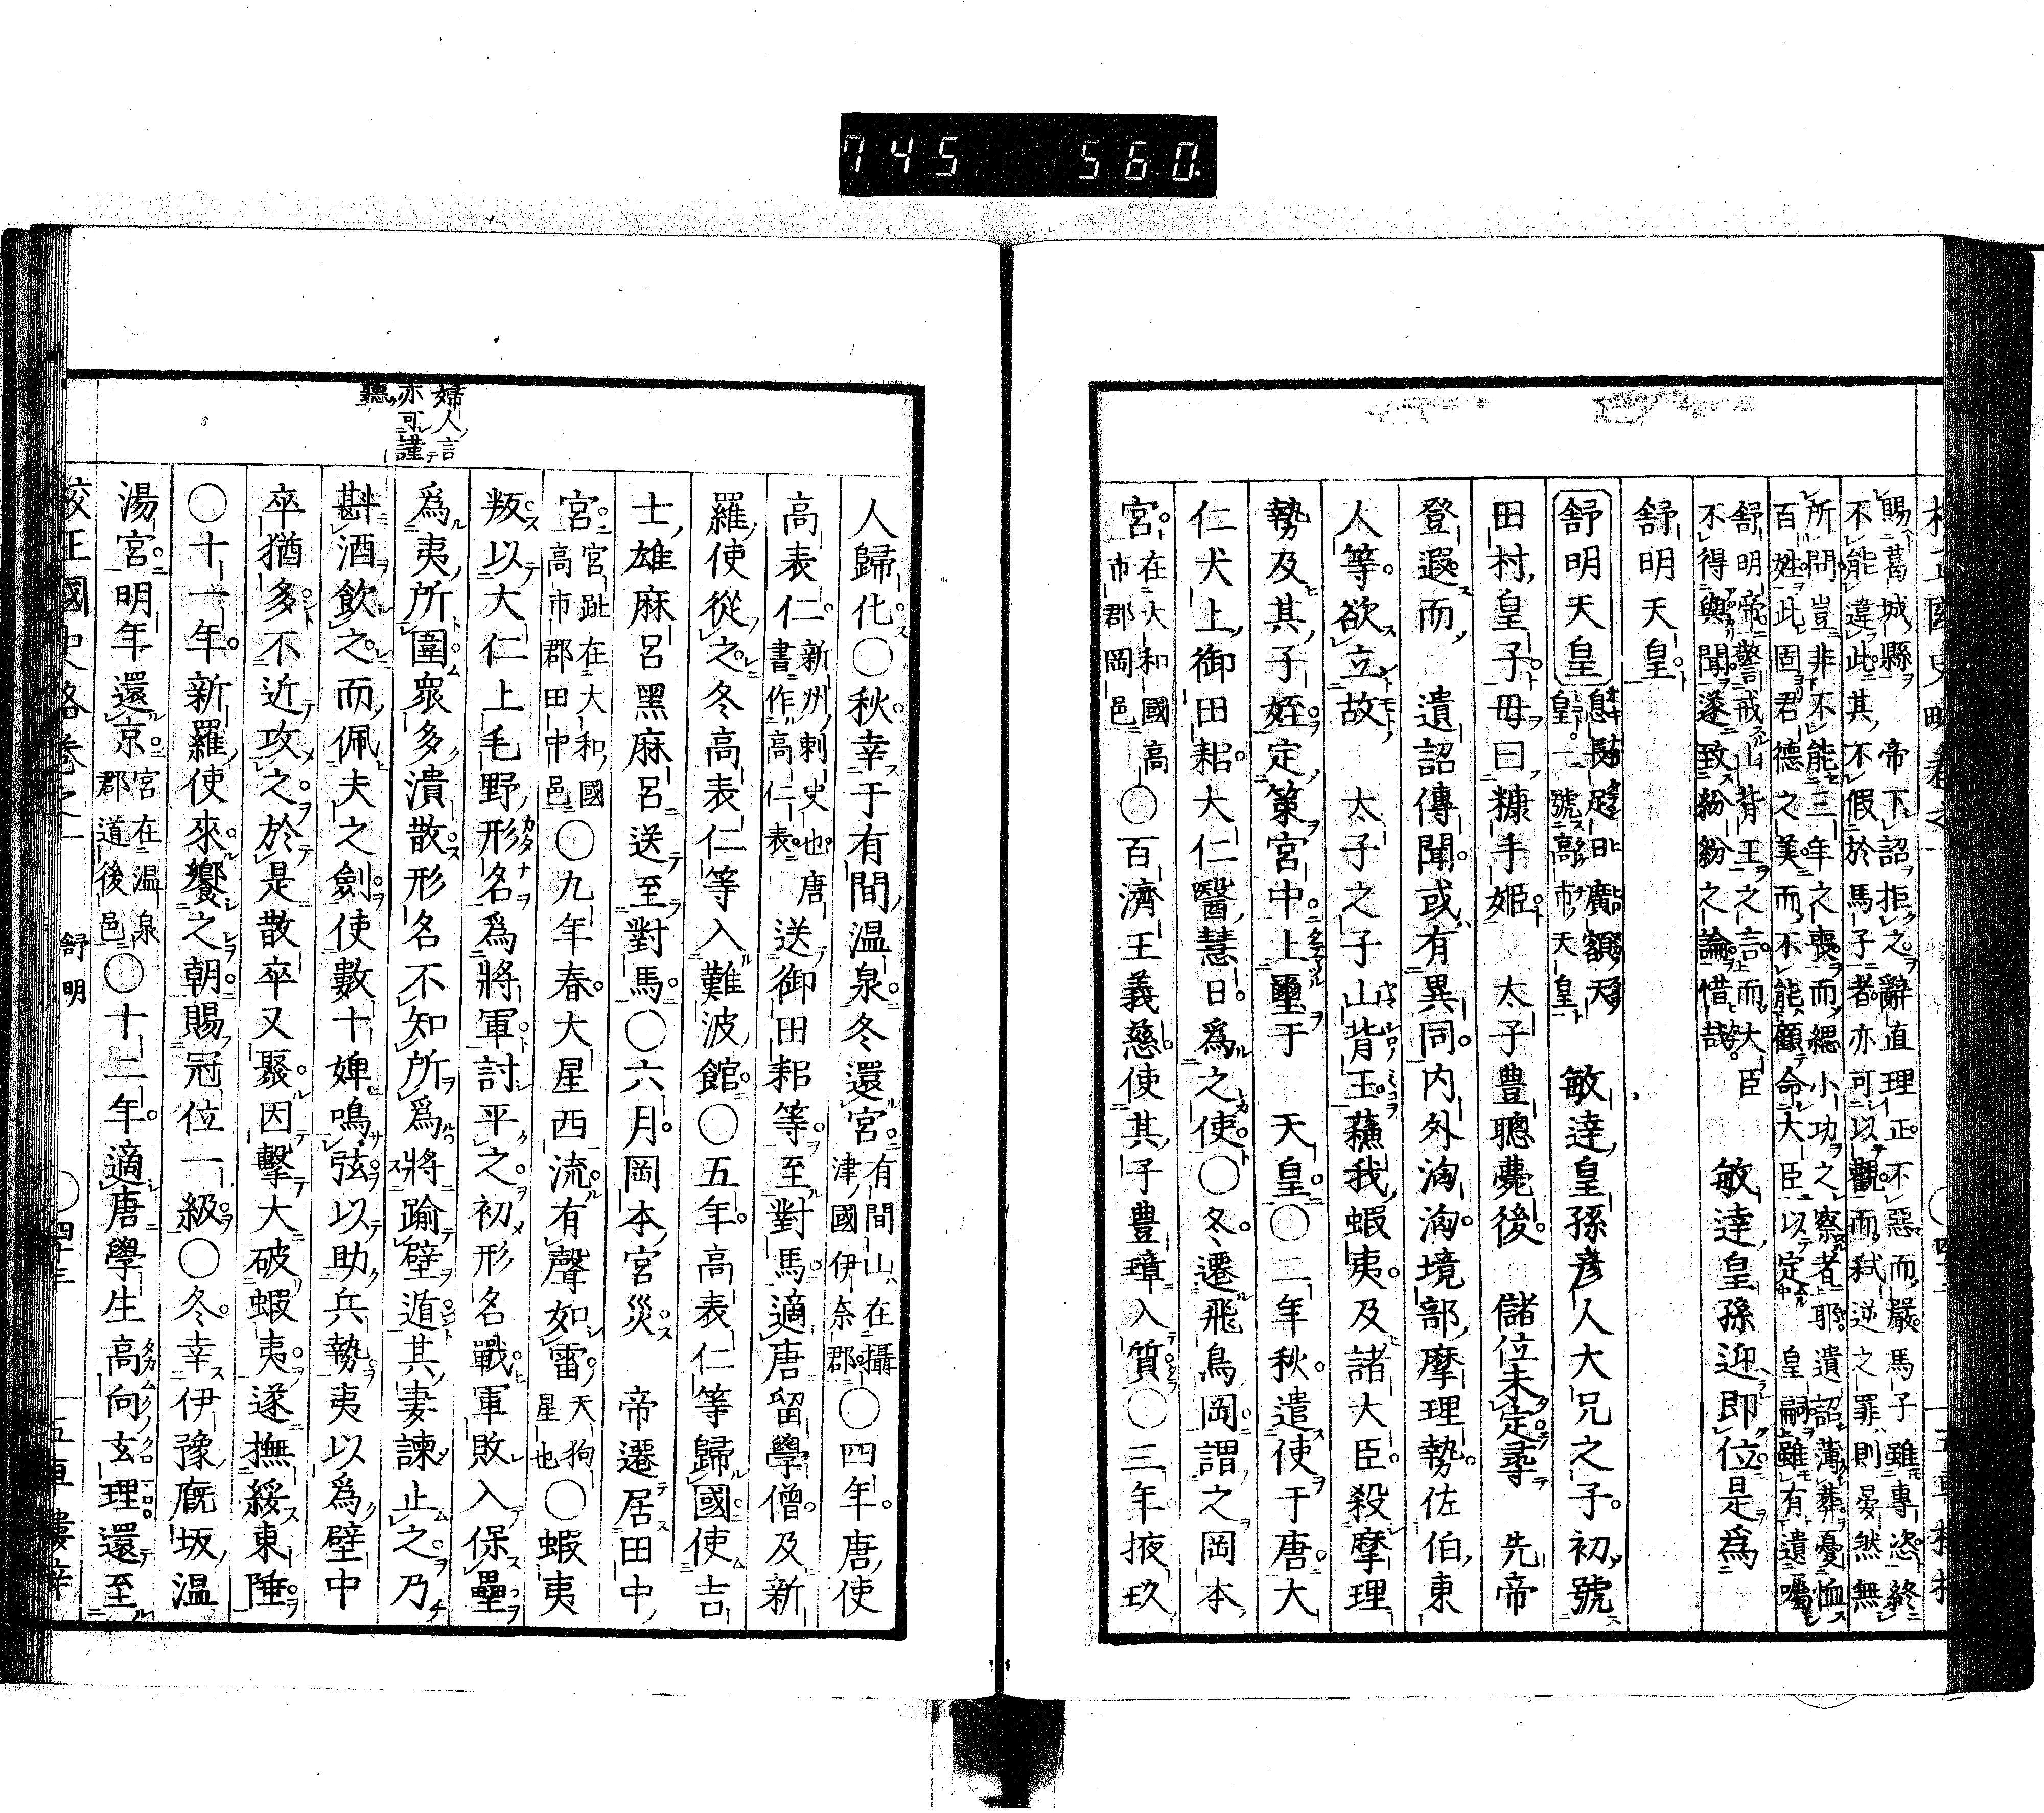 745 560.
賜葛城縣 帝下詔拒之辭直理正不惡而嚴馬子雖專恣終
不能違此其不假於馬子者亦可以觀而弑逆之罪則晏然無
所問豈非不能三年之喪而緦小功之察者耶遺詔薄葬憂恤
百姓此固君德之美而不能顧命大臣以定皇嗣雖有遺囑
舒明帝警戒山背王之言而大臣
不得與聞遂致紛紛之論惜哉 敏達皇孫迎即位是爲
舒明天皇
舒明天皇 息長足日廣額天皇一號高市天皇 敏達皇孫彦人大兄之子初號
田村皇子母曰糠手姫 太子豊聰薨後 儲位未定尋 先帝
登遐而 遺詔傳聞或有異同内外洶洶境部摩理勢佐伯東
人等欲立故 太子之子山背王蘓我蝦夷及諸大臣殺摩理
勢及其子姪定策宮中上璽于 天皇○二年秋遣使于唐大
仁犬上御田耜大仁醫慧日爲之使○冬遷飛鳥岡謂之岡本
宮在大和國高市郡岡邑○百濟王義慈使其子豊璋入質○三年掖玖
人歸化○秋幸于有間温泉冬還宮有間山在攝津國伊奈郡○四年唐使
高表仁新州刺史也唐書作高仁表送御田耜等至對馬適唐留學僧及新
羅使從之冬高表仁等入難波館○五年高表仁等歸國使吉
士雄麻呂黑麻呂送至對馬○六月岡本宮災 帝遷居田中
宮宮趾在大和國高市郡田中邑○九年春大星西流有聲如雷天狗星也○蝦夷
叛以大仁上毛野形名爲將軍討平之初形名戰軍敗入保壘
爲夷所圍衆多潰散形名不知所爲將踰壁遁其妻諫止之乃
斟酒飲之而佩夫之劍使數十婢鳴弦以助兵勢夷以爲壁中
卒猶多不近攻之於是散卒又聚因擊大破蝦夷遂撫綏東陲
○十一年新羅使來饗之朝賜冠位一級○冬幸伊豫廐坂温
湯宮明年還京宮在温泉郡道後邑○十二年適唐學生高向玄理還至
婦人言
亦可謹
聽
校正國史略卷之一 舒明 ○四十三 五車樓梓